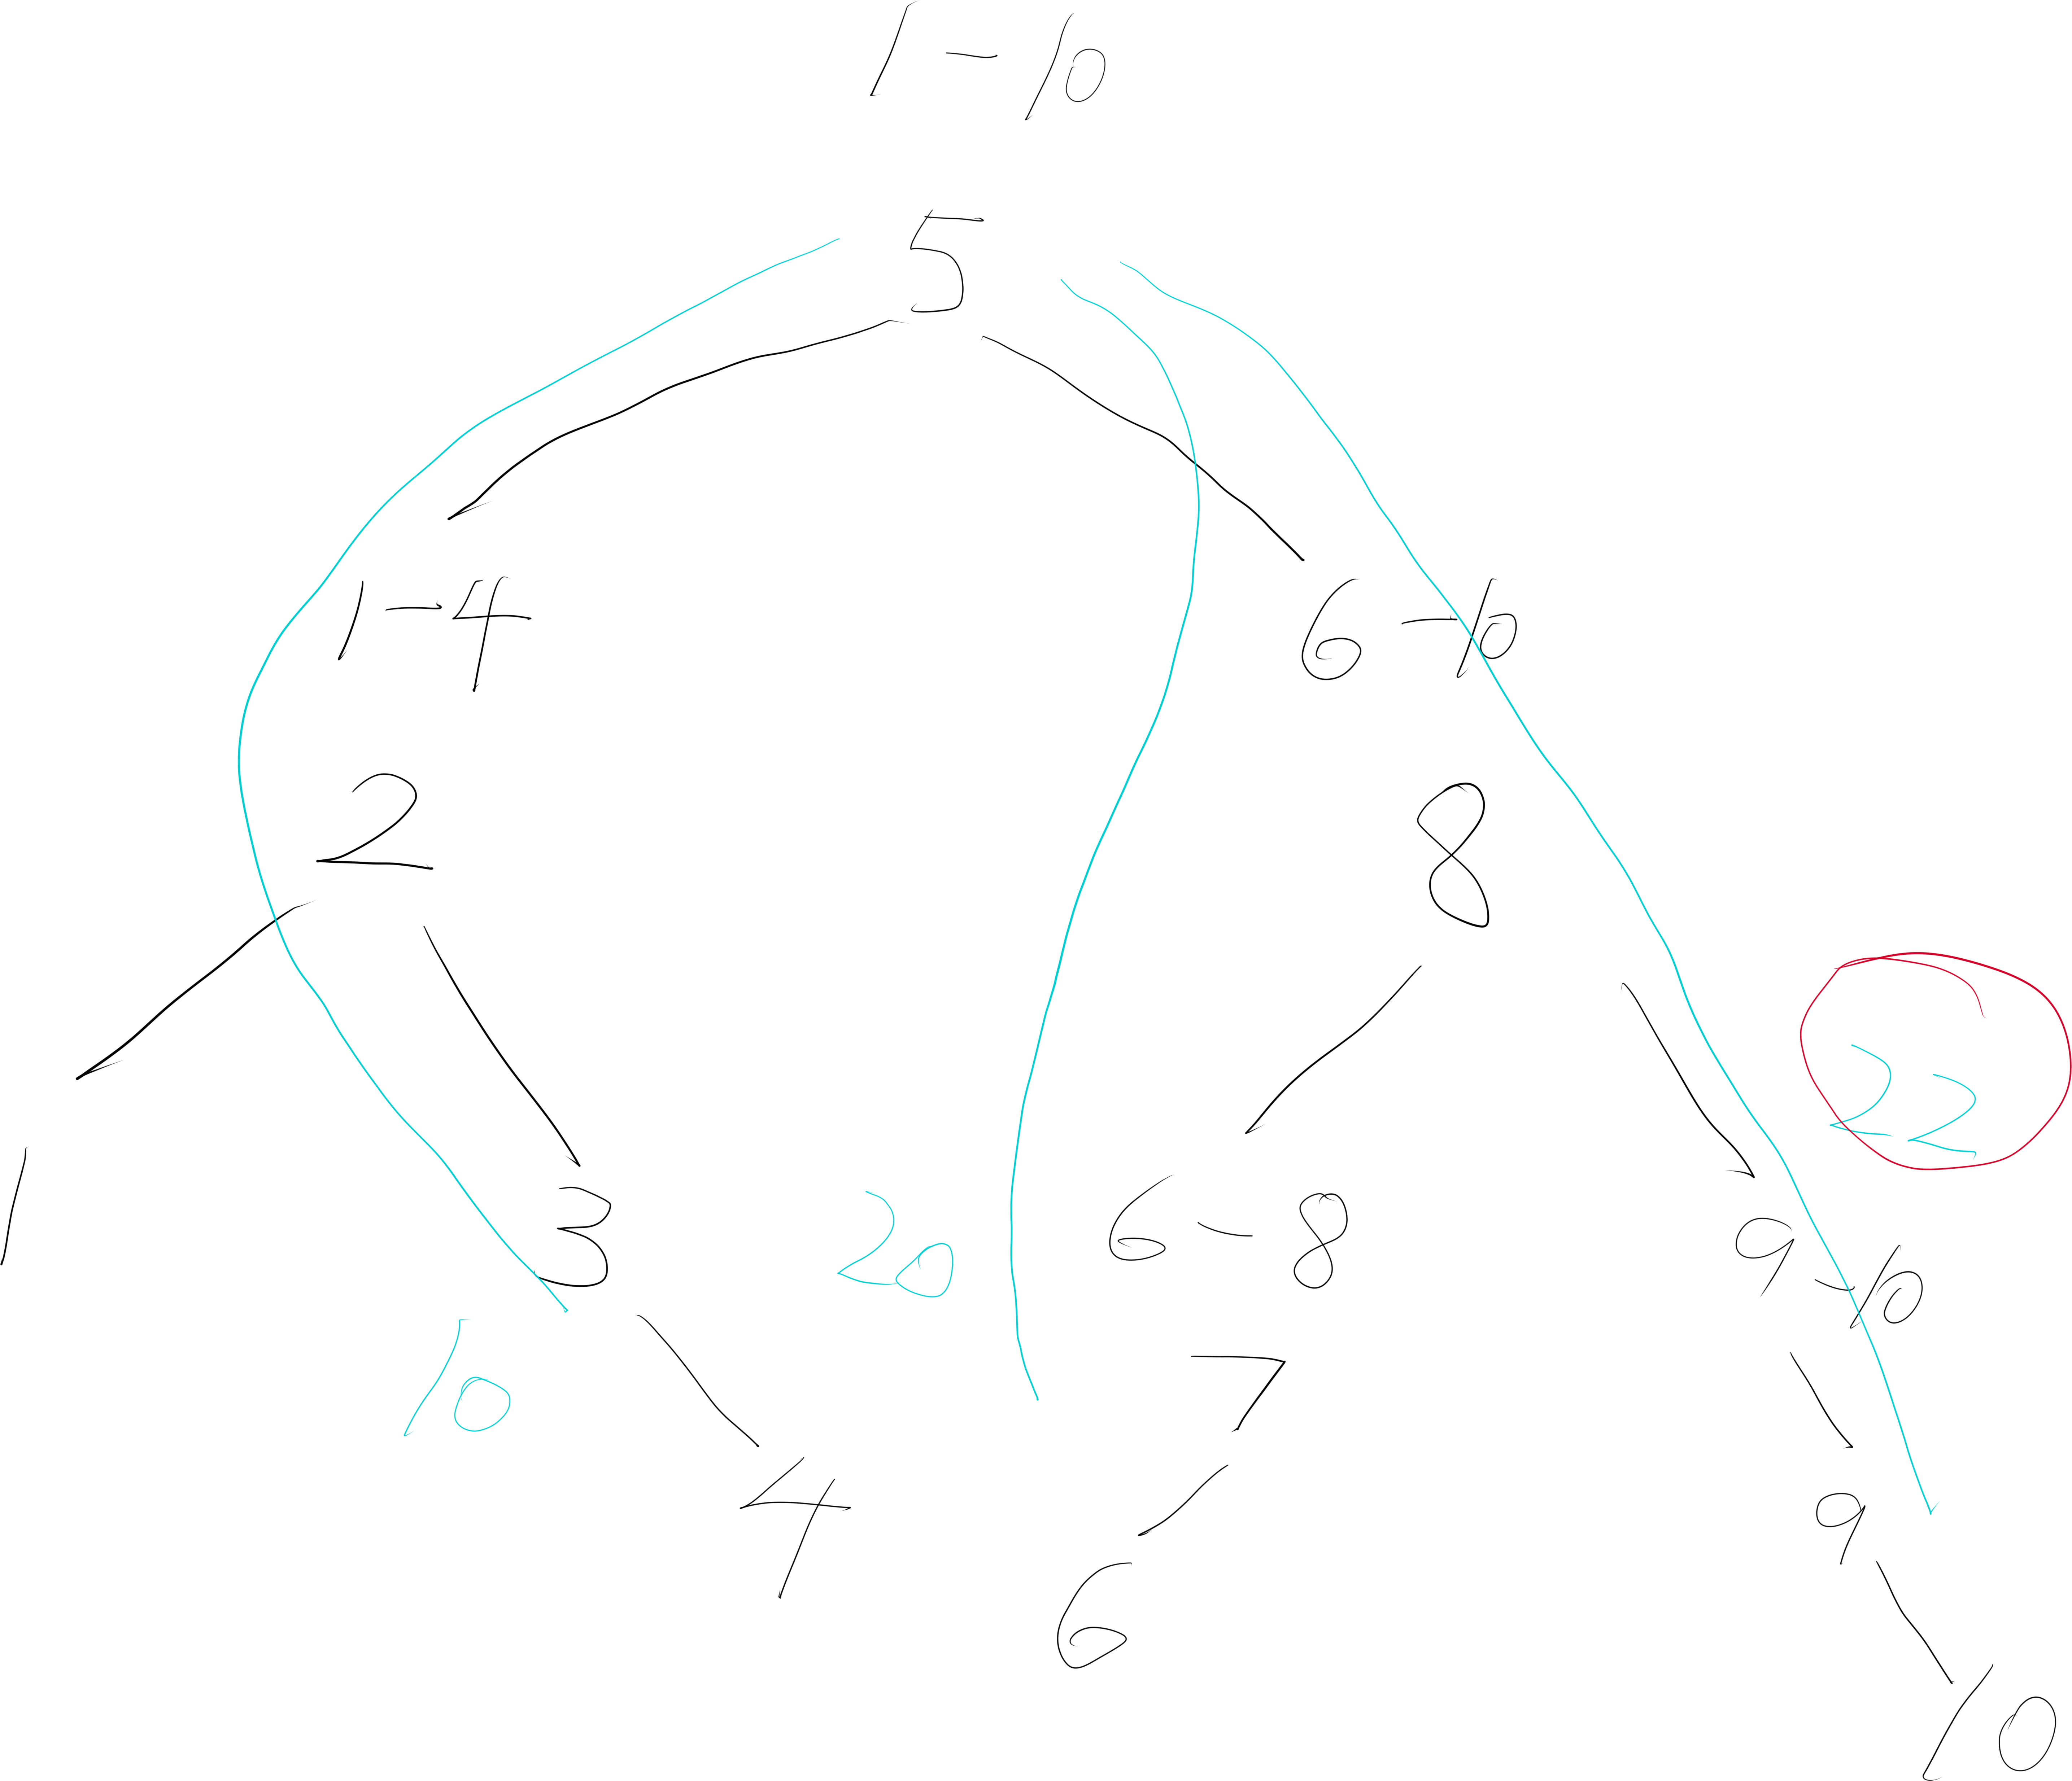 1-10
5
1-4 6-10
2 8
22
1 3 20 6-8 9-10
10 7
4 9
6
10